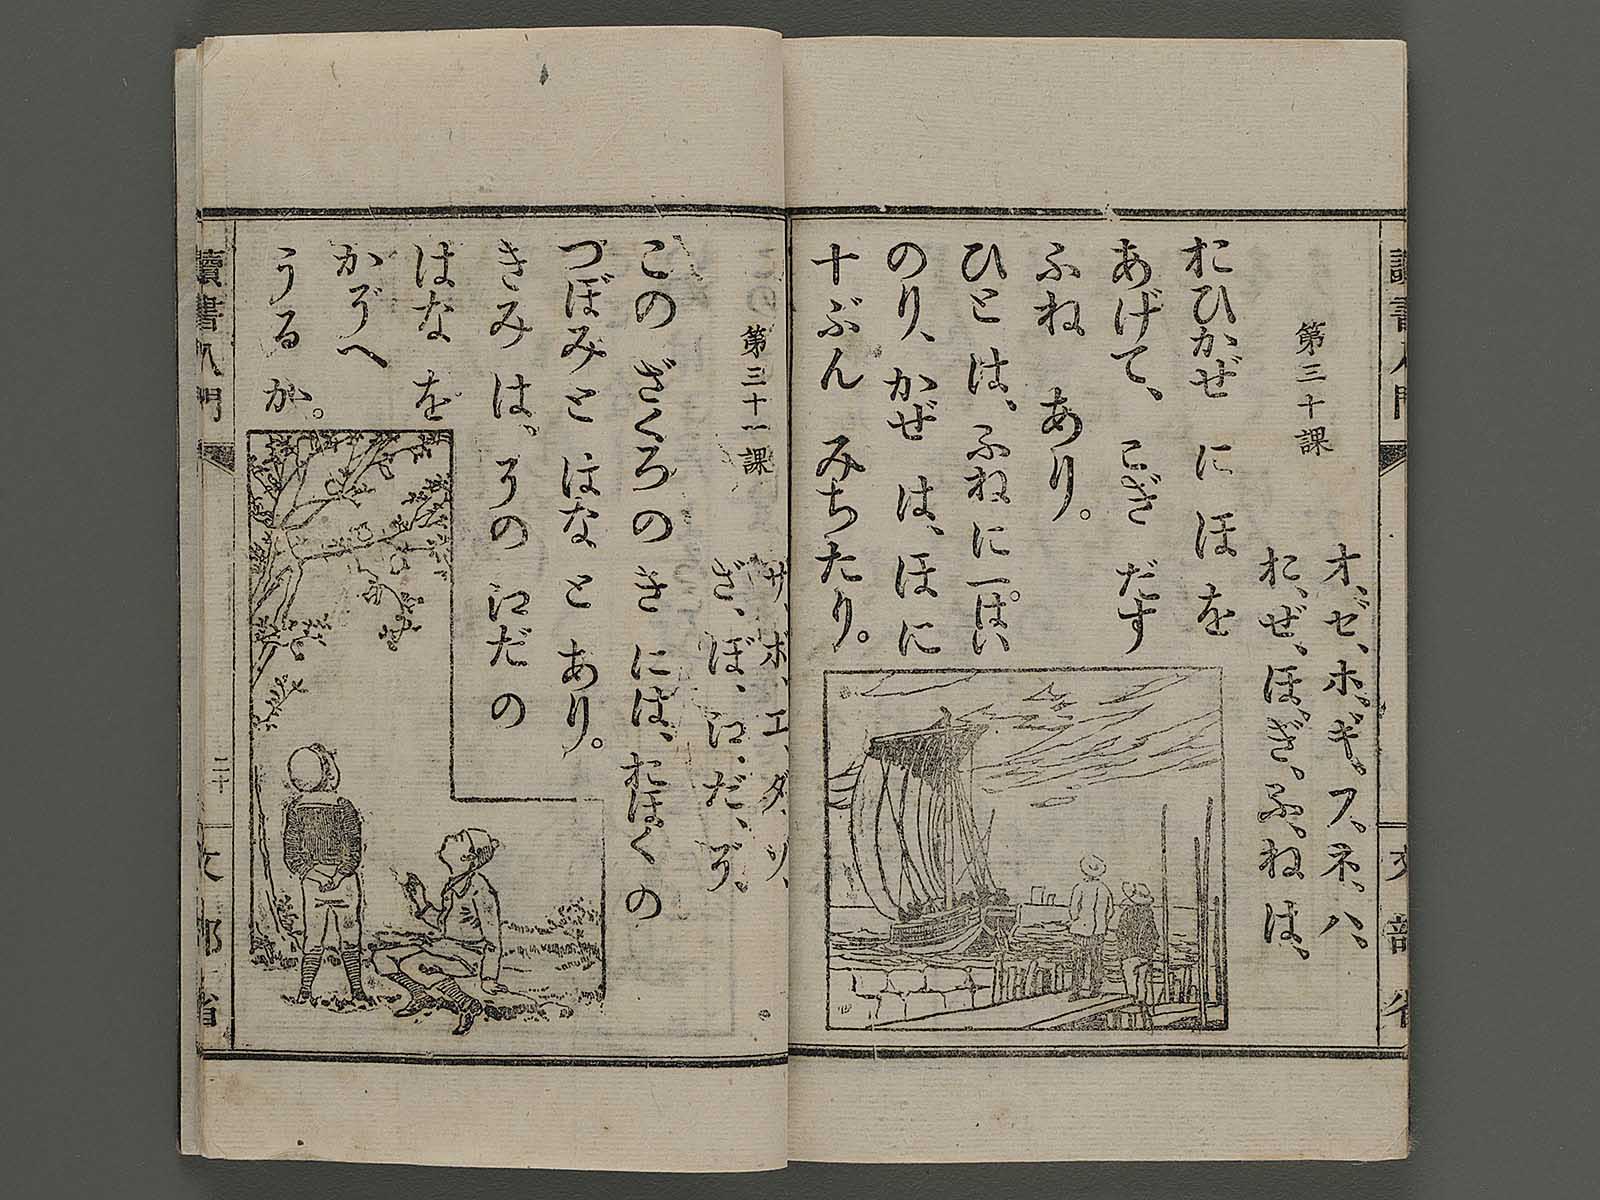 讀書入門 文部省
第三十課
オ、ゼ、ホ、ギ、フ、ネ、ハ、
お、ぜ、ほ、ぎ、ふ、ね、は、
おひかぜ に ほ を
あげて、 こぎ だす
ふね あり。
ひと は、 ふねに 一ぱい
のり、 かぜ は、 ほに
十ぶん みちたり。
第三十一課
ザ、ボ、エ、ダ、ゾ、
ざ、ぼ、え、だ、ぞ、
この ざくろのき には、 おほくの
つぼみと はなと あり。
きみは、 その えだの
はな を
かぞへ
うる か。
讀書入門 二十 文部省